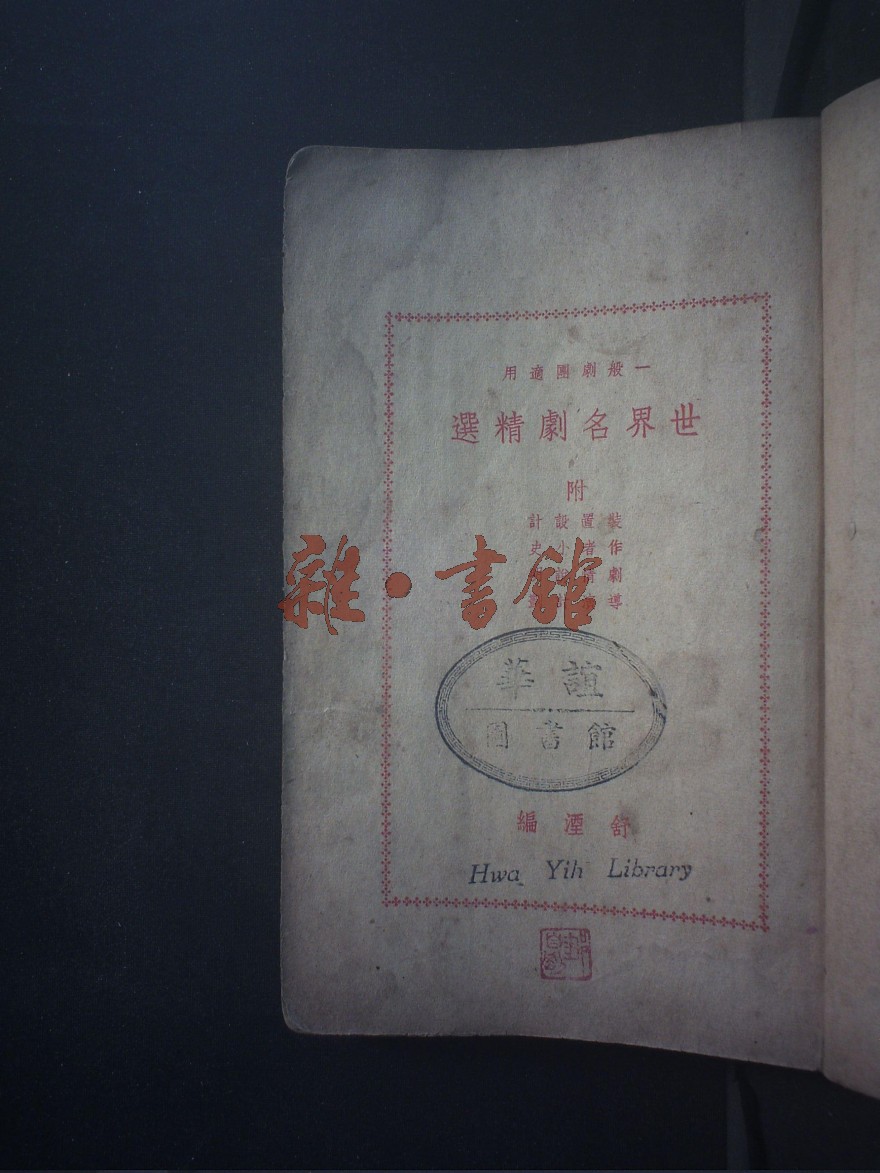 一般劇團適用
世界名劇精選
附
裝置設計
作者小史
劇情
導
雜·書館
華誼
圖書館
舒湮編
Hwa Yih Library